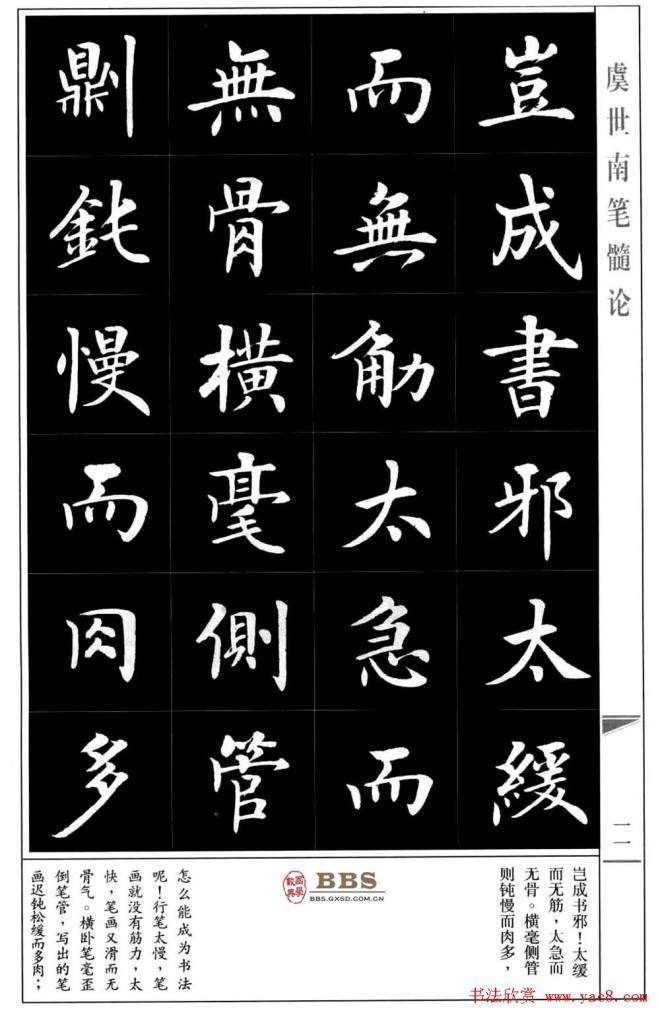 虞世南笔髓论
豈成書邪太緩
而無觔太急而
無骨橫毫側管
劓鈍慢而肉多
二
岂成书邪！太缓
而无筋，太急而
无骨。横毫侧管
则钝慢而肉多，
BBS
BBS.GXSD.COM.CN
怎么能成为书法
呢！行笔太慢，笔
画就没有筋力，太
快，笔画又滑而无
骨气。横卧笔毫歪
倒笔管，写出的笔
画迟钝松缓而多肉；
书法欣赏 www.yac8.com